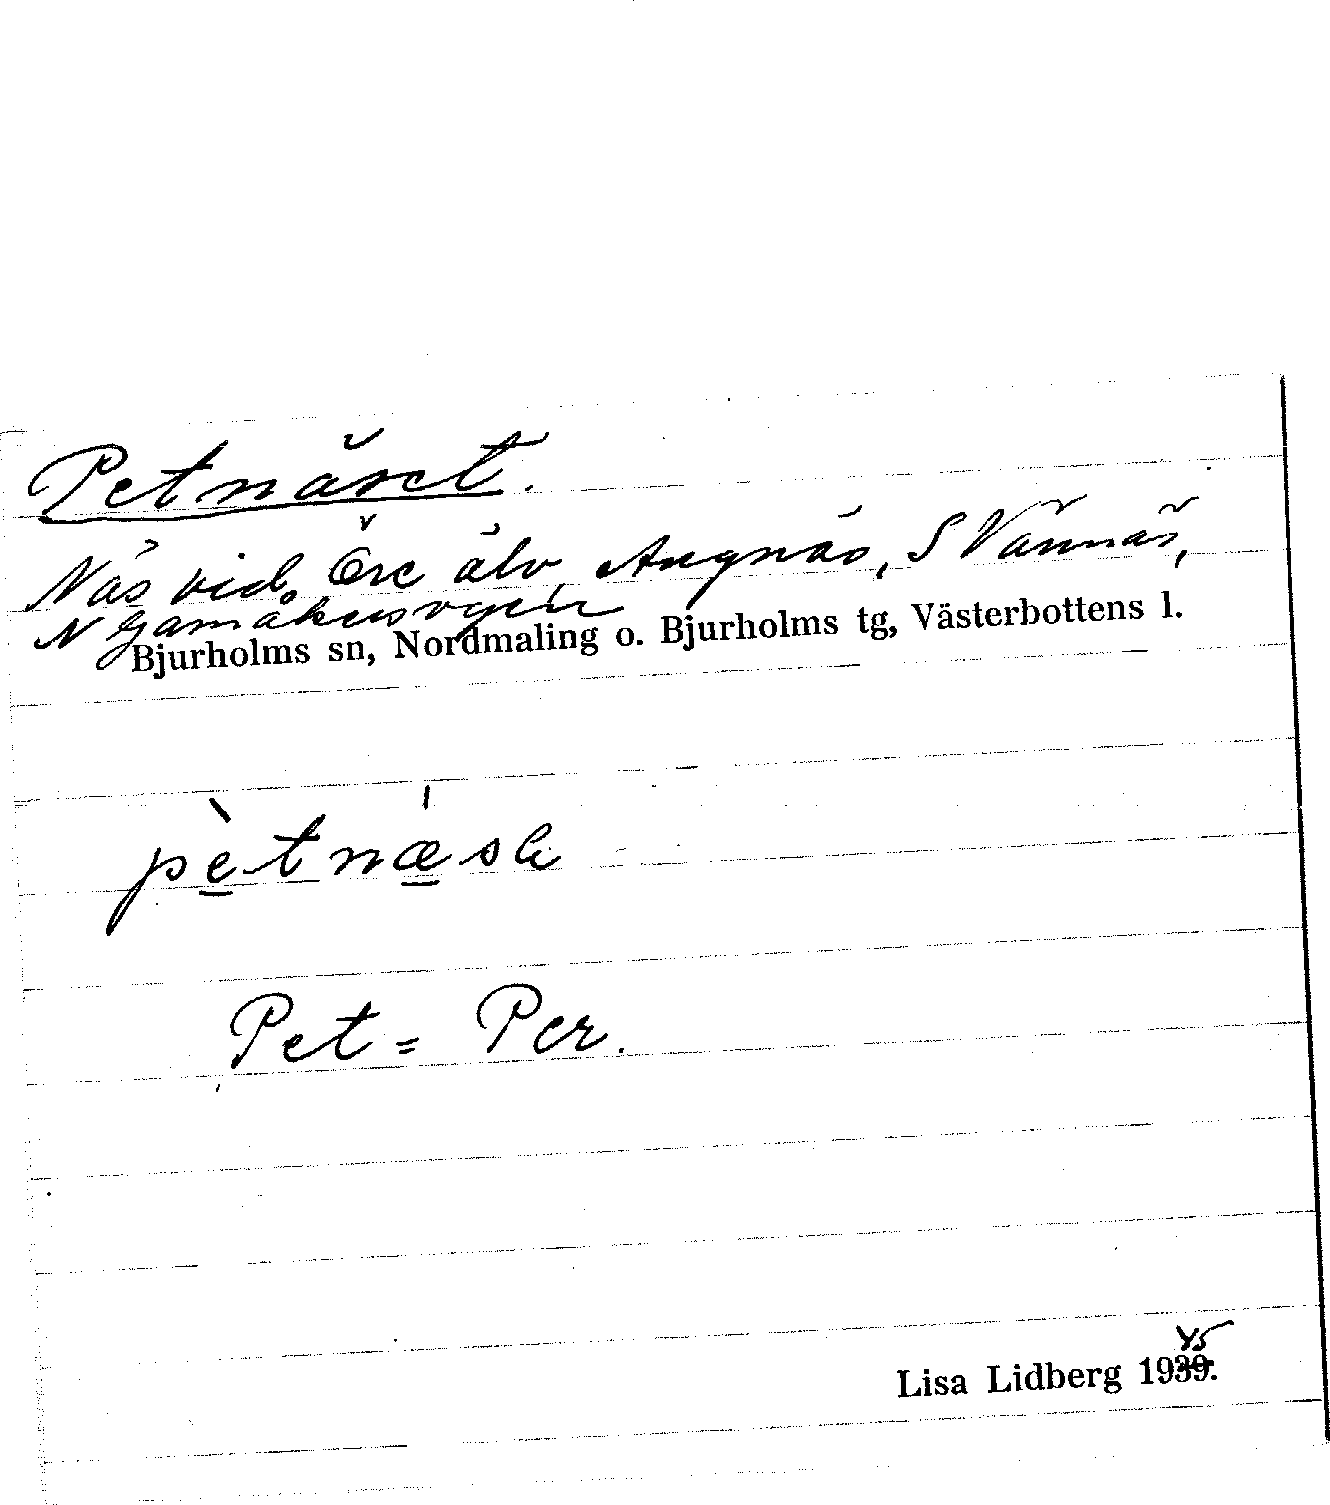 Petnäset.
Näs vid Öre älv, Angnäs, S Vännäs,
N Gamåkersvyen
Bjurholms sn, Nordmaling o. Bjurholms tg, Västerbottens l.
pètnǽsE
Pet = Per.
45
Lisa Lidberg 1939.